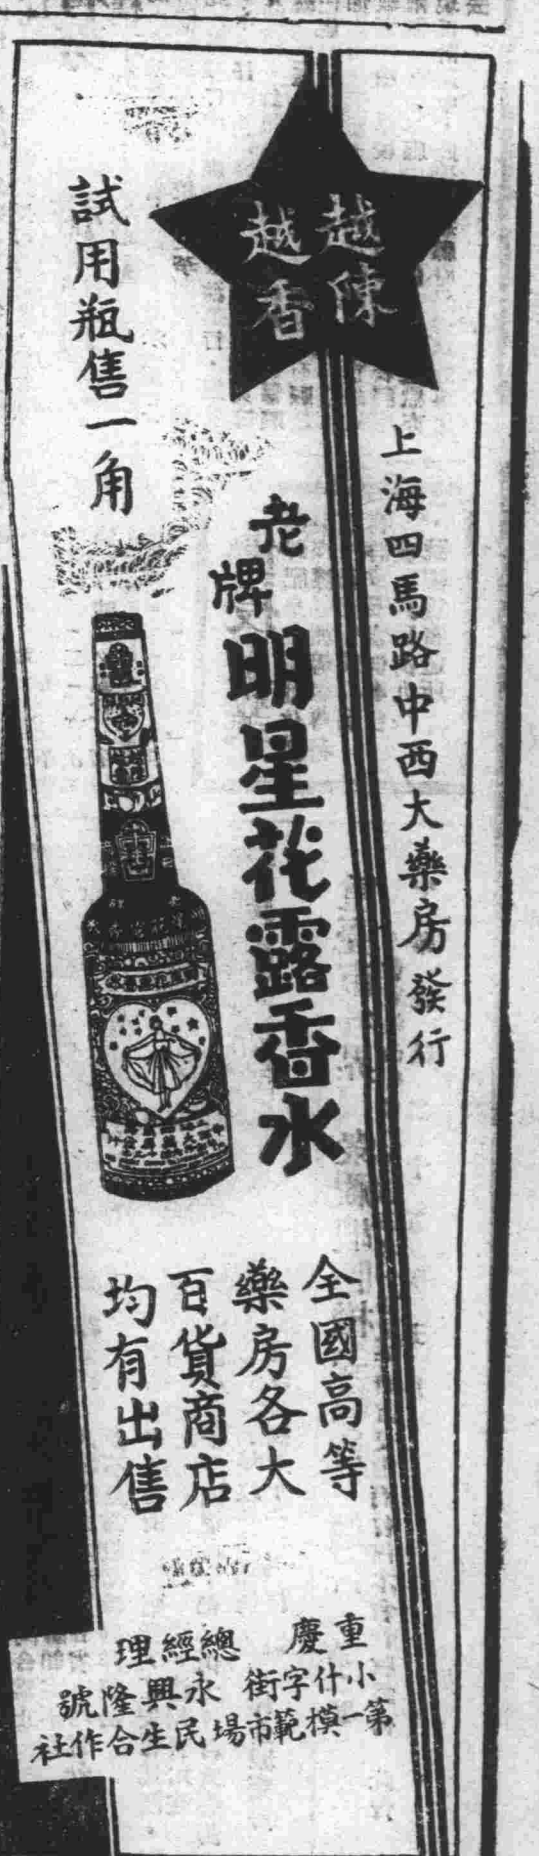 越陳
越香
上海四馬路中西大藥房發行
老牌
明星花露香水
試用瓶售一角
全國高等
藥房各大
百貨商店
均有出售
重慶 總經理
小什字街 永興隆號
第一模範市場 民生合作社